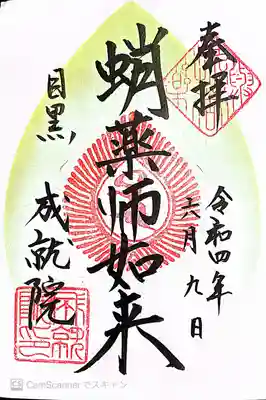 奉拝
令和四年
六月九日
蛸薬師如来
目黒
成就院
CS CamScanner でスキャン